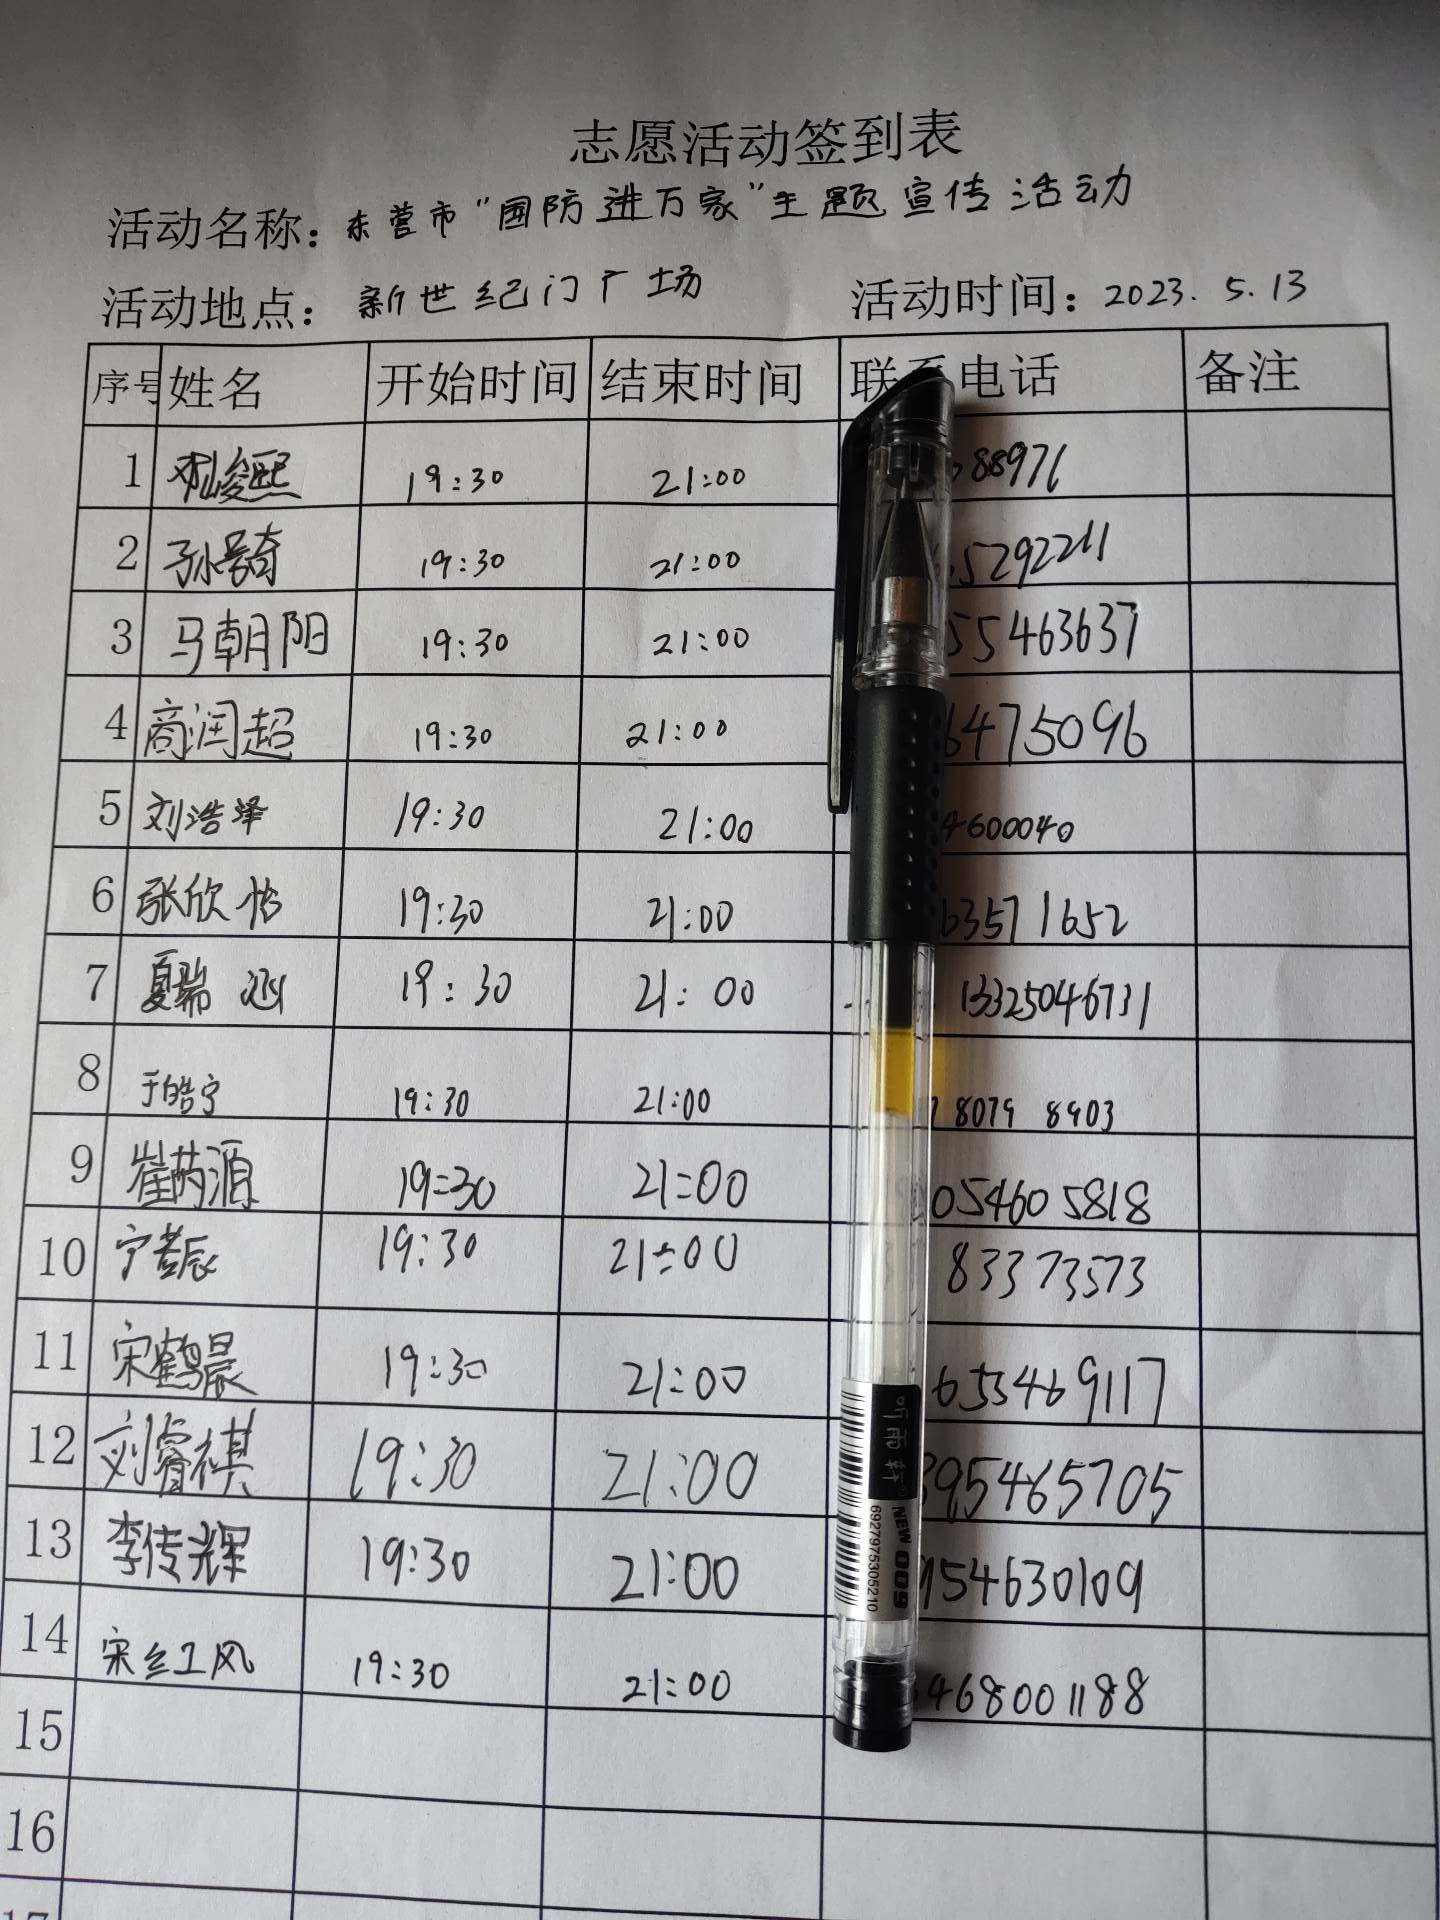 志愿活动签到表
活动名称：东营市“国防进万家”主题宣传活动
活动地点：新世纪门广场 活动时间：2023.5.13
序号 姓名 开始时间 结束时间 联系电话 备注
1 19:30 21:00 88976
2 19:30 21:00 5292211
3 马朝阳 19:30 21:00 55463637
4 商润超 19:30 21:00 6475096
5 刘浩泽 19:30 21:00 4600040
6 张欣怡 19:30 21:00 63571652
7 夏瑞涵 19:30 21:00 13325046731
8 于皓宁 19:30 21:00 7 8079 8903
9 崔芮源 19:30 21:00 054605818
10 宁若辰 19:30 21:00 83373573
11 宋鹤晨 19:30 21:00 655469117
12 刘睿祺 19:30 21:00 395465705
13 李传辉 19:30 21:00 954630109
14 宋红风 19:30 21:00 468001188
15
16
17
听雨轩® NEW 009
6927975305210